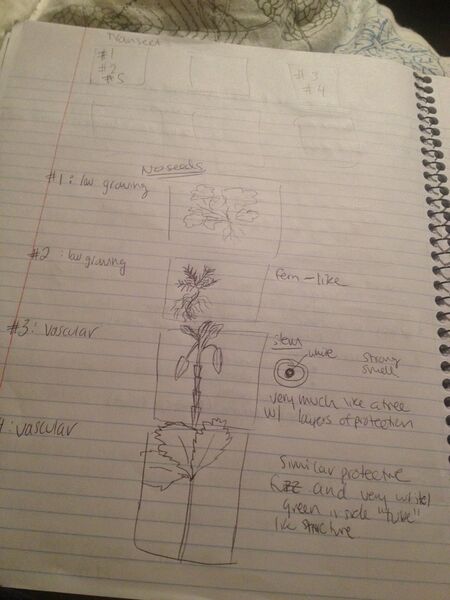 Transect
#1
#2
#5
#3
#4
No seeds
#1: low growing
#2: low growing
fern-like
#3: vascular
stem
strong
smell
very much like a tree
w/ layers of protection
4: vascular
Similar protective
fuzz and very
green inside "tube"
like structure